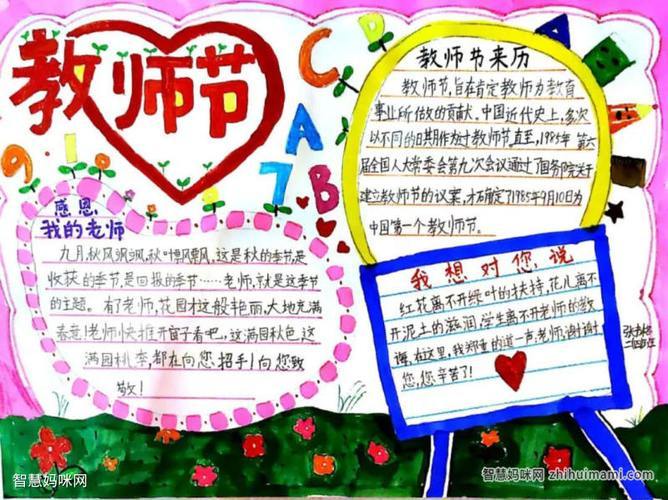 教师节
C
D
A
A
B
9
1
0
7
教师节来历
教师节,旨在肯定教师为教育
事业所做的贡献。中国近代史上,多次
以不同的日期作为过教师节。直至,1985年第六
届全国人大常委会第九次会议通过了国务院关于
建立教师节的议案,才确定了1985年9月10日为
中国第一个教师节。
感恩
我的老师
九月,秋风飒飒,秋叶飘飘,这是秋的季节,是
收获的季节,是回报的季节……老师,就是这季节
的主题。有了老师,花园才这般艳丽,大地充满
春意!老师快推开窗子看吧,这满园秋色,这
满园桃李,都在向您招手!向您致
敬!
我想对您说
红花离不开绿叶的扶持,花儿离不
开泥土的滋润,学生离不开老师的教
诲,在这里,我郑重的道一声,老师,谢谢
您,您辛苦了!
智慧妈咪网
智慧妈咪网 zhihuimami.com